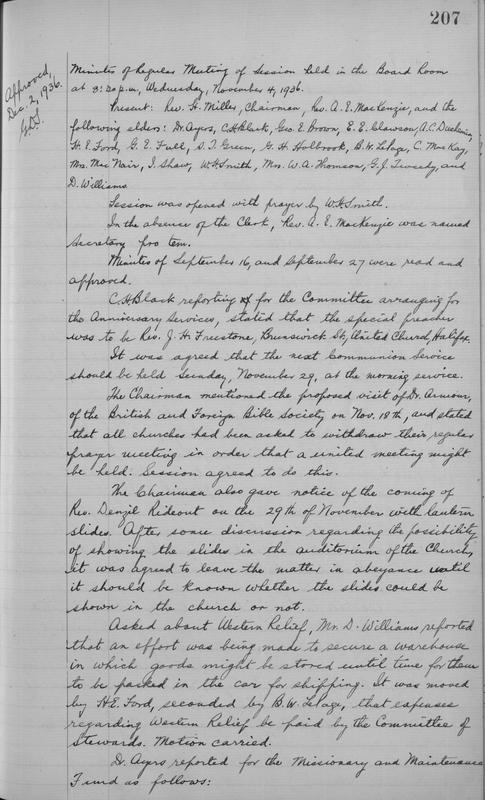 207
Approved,
Dec. 2, 1936.
Minutes of Regular Meeting of Session held in the Board Room
at 3:20 p.m., Wednesday, November 4, 1936.
Present: Rev. G. Miller, Chairman, Rev. A. E. MacKenzie, and the
following elders: Dr. Ayers, C.H. Black, Geo. E. Brown, E. E. Clawson, A.C.
H. E. Ford, G. E. Full, S. T. Green, G. H. Holbrook, B. W. LePage, C. MacKay,
Mrs. MacNair, I. Shaw, W. H. Smith, Mrs. W. A. Thomson, G. J. Tweedy, and
D. Williams.
Session was opened with prayer by W. H. Smith.
In the absence of the Clerk, Rev. A. E. MacKenzie was named
Secretary pro tem.
Minutes of September 16, and September 27 were read and
approved.
C. H. Black reporting for the Committee arranging for
the Anniversary Services, stated that the special preacher
was to be Rev. J. H. Freestone, Brunswick St., United Church, Halifax.
It was agreed that the next Communion Service
should be held Sunday, November 29, at the morning service.
The Chairman mentioned the proposed visit of Dr. Armour,
of the British and Foreign Bible Society on Nov. 18th, and stated
that all churches had been asked to withdraw their regular
prayer meeting in order that a united meeting might
be held. Session agreed to do this.
The Chairman also gave notice of the coming of
Rev. Denzil Rideout on the 29th of November with lantern
slides. After some discussion regarding the possibility
of showing the slides in the auditorium of the Church,
it was agreed to leave the matter in abeyance until
it should be known whether the slides could be
shown in the church or not.
Asked about Western Relief, Mr. D. Williams reported
that an effort was being made to secure a warehouse
in which goods might be stored until time for them
to be packed in the car for shipping. It was moved
by H.E. Ford, seconded by B.W. LePage, that expenses
regarding Western Relief be paid by the Committee of
Stewards. Motion carried.
Dr. Ayers reported for the Missionary and Maintenance
Fund as follows: